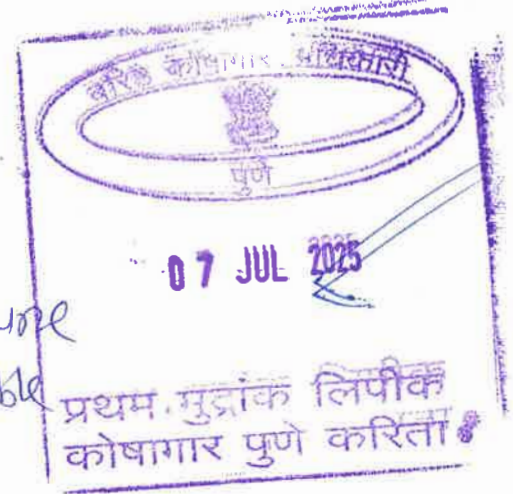 वरिष्ठ कोषागार अधिकारी
पुणे
07 JUL 2025
प्रथम मुद्रांक लिपीक
कोषागार पुणे करिता